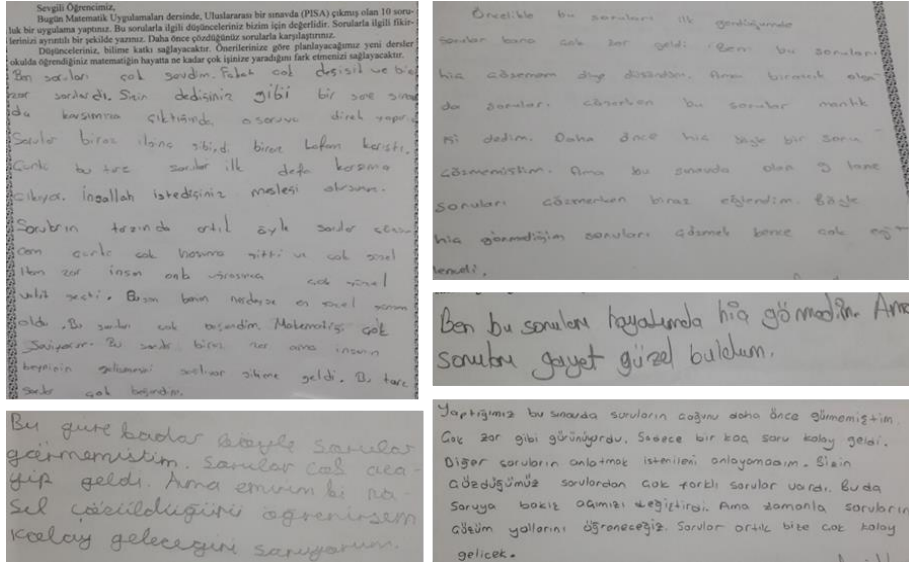 Sevgili Öğrencimiz,
Bugün Matematik Uygulamaları dersinde, Uluslararası bir sınavda (PISA) çıkmış olan 10 soru-
luk bir uygulama yaptınız. Bu sorularla ilgili düşünceleriniz bizim için değerlidir. Sorularla ilgili fikir-
lerinizi ayrıntılı bir şekilde yazınız. Daha önce çözdüğünüz sorularla karşılaştırınız.
Düşünceleriniz, bilime katkı sağlayacaktır. Önerilerinize göre planlayacağımız yeni dersler
okulda öğrendiğiniz matematiğin hayatta ne kadar çok işinize yaradığını fark etmenizi sağlayacaktır.
Ben soruları çok sevdim. Fakat çok değişik ve biraz
zor sorulardı. Sizin dediğiniz gibi bir sene sınav
da karşımıza çıktığında o soruyu direk yaparız
Sorular biraz ilginç gibiydi biraz kafam karıştı.
Çünkü bu tarz sorular ilk defa karşıma
çıkıyor. İnşallah istediğiniz mesleği alırsınız.
Soruların tarzında artık öyle sorular
çünkü çok hoşuma gitti ve çok güzel
zor insan onla uğraşınca çok güzel
vakit geçti. Bu son benim nerdeyse en güzel
oldu. Bu soruları çok beğendim. Matematiği çok
Seviyorum. Bu sorular biraz zor ama insanın
beyninin gelişmesini geldi. Bu tarz
sorular çok beğendim.
Bu güne kadar böyle sorular
görmemiştim. Sorular çok aca-
yip geldi. Ama eminim ki na-
sıl çözüldüğünü öğrenirsem
kolay geleceğini sanıyorum.
Öncelikle bu soruları ilk gördüğümde
sorular bana çok zor geldi. Ben bu soruları
hiç çözemem diye düşündüm. Ama birazcık olsa
da soruları çözerken bu sorular mantık
işi dedim. Daha önce hiç böyle bir soru
çözmemiştim. Ama bu sınavda olan 9 tane
soruları çözmerken biraz eğlendim. Böyle
hiç görmediğim soruları çözmek bence çok eğ-
lenceli.
Ben bu soruları hayatımda hiç görmedim. Ama
soruları gayet güzel buldum.
Yaptığımız bu sınavda soruların çoğunu daha önce görmemiştim.
Çok zor gibi görünüyordu. Sadece bir kaç soru kolay geldi.
Diğer soruların anlatmak istenileni anlayamadım. Sizin
çözdüğümüz sorulardan çok farklı sorular vardı. Bu da
Soruya bakış açımızı değiştirdi. Ama zamanla soruların
çözüm yollarını öğreneceğiz. Sorular artık bize çok kolay
gelicek.